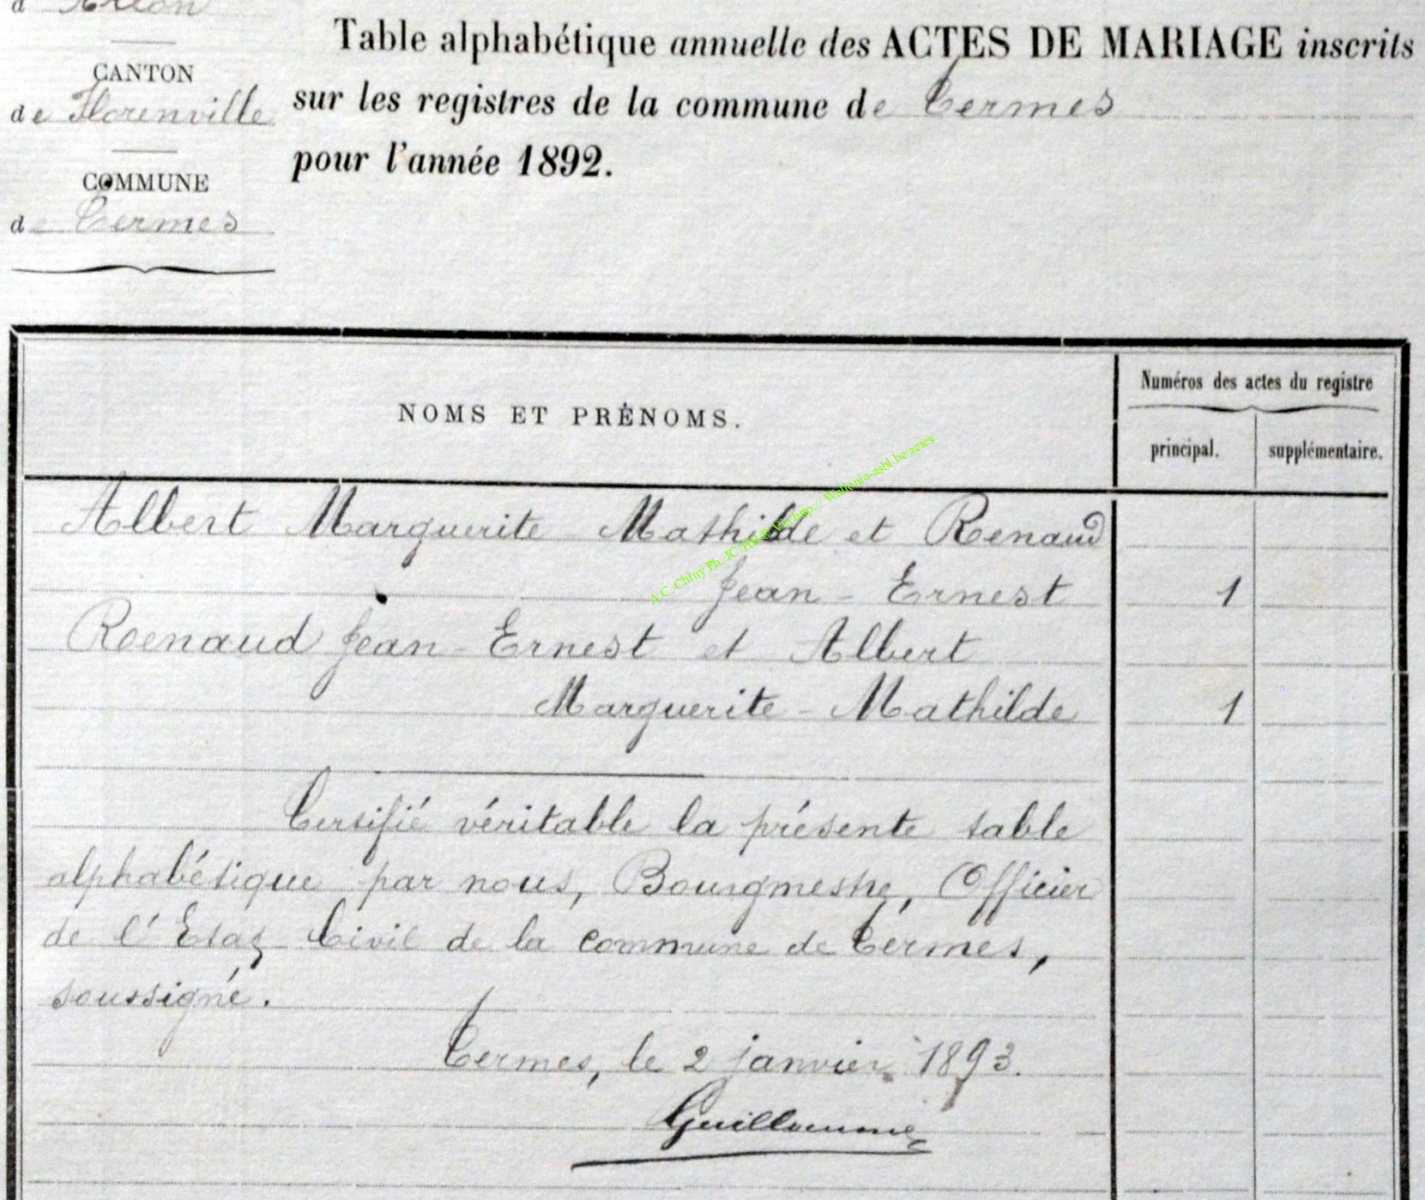 d' Arlon
CANTON
de Florenville
COMMUNE
de Termes
Table alphabétique annuelle des ACTES DE MARIAGE inscrits
sur les registres de la commune de Termes
pour l'année 1892.
NOMS ET PRÉNOMS.
Numéros des actes du registre
principal.
supplémentaire.
Albert Marguerite - Mathilde et Renaud
Jean - Ernest 1
Renaud Jean - Ernest et Albert
Marguerite - Mathilde 1
Certifié véritable la présente table
alphabétique par nous, Bourgmestre, Officier
de l'Etat Civil de la commune de Termes,
soussigné.
Termes, le 2 janvier 1893.
Guillaume